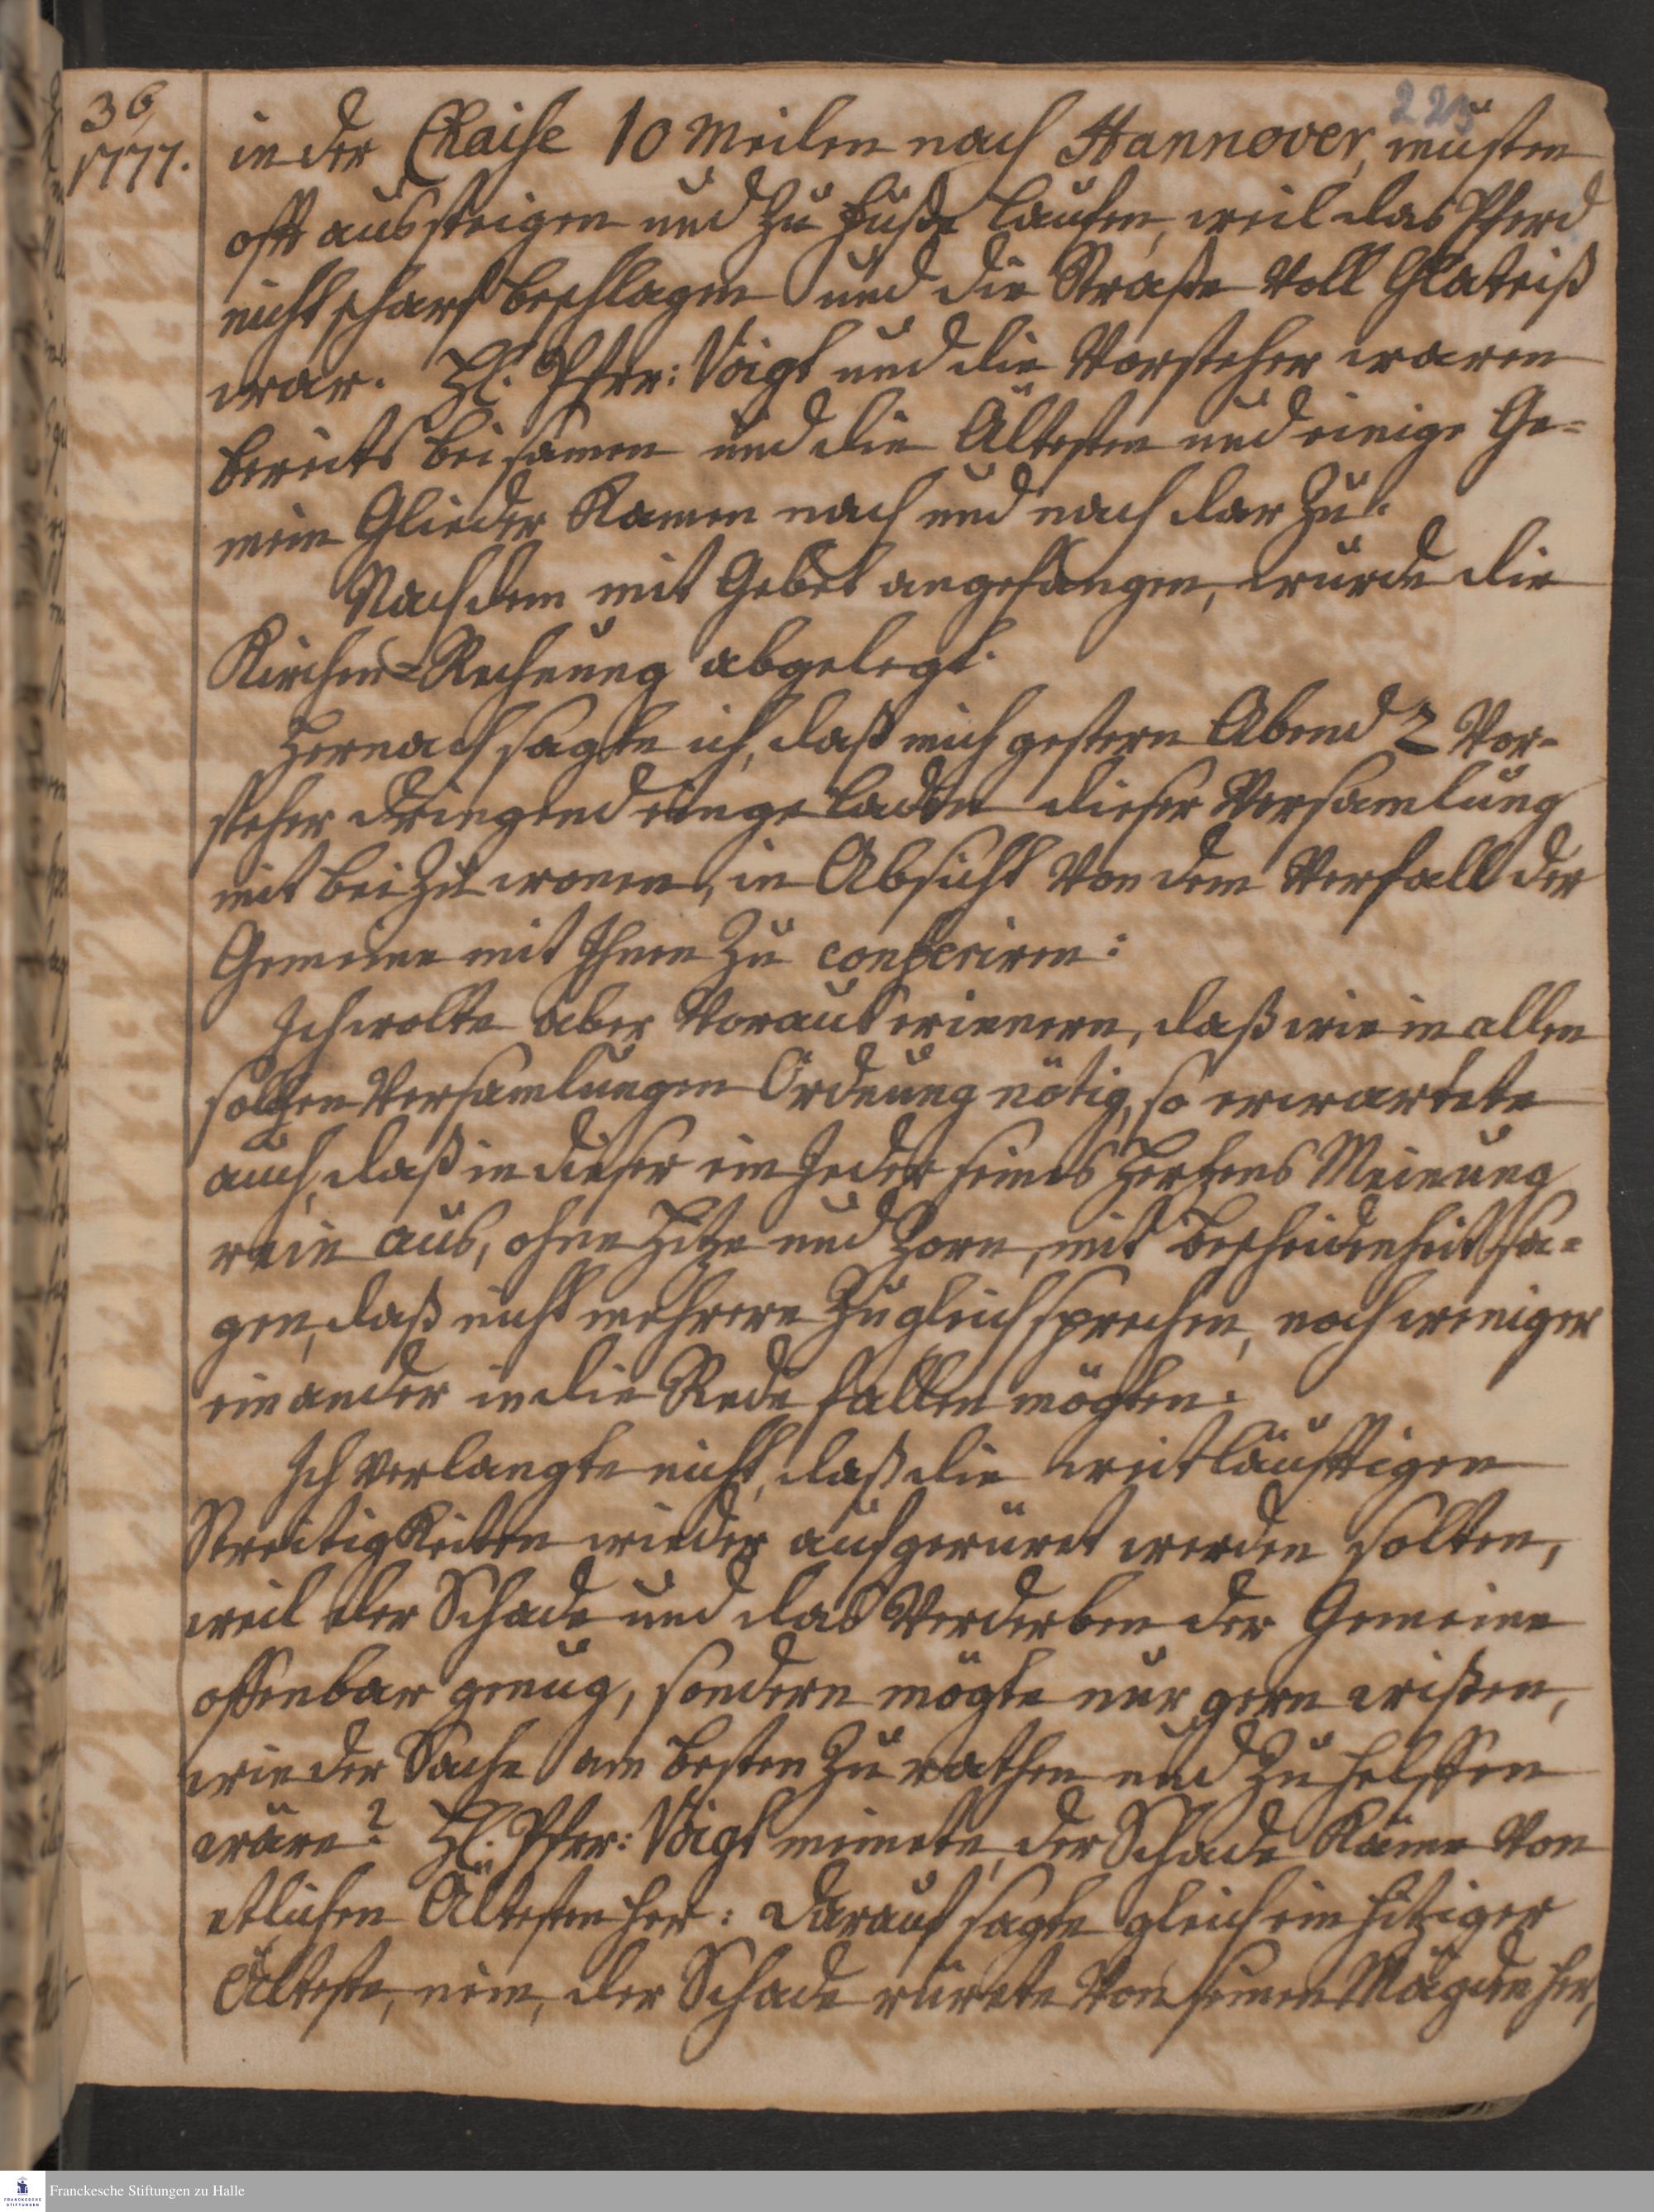 36
1777.
in der Chaise 10 Meilen nach Hannover, musten
oft aussteigen und zu Fuße laufen, weil das Pferd
nicht scharf beschlagen und die Straße voll Glateiß
war. H. Pfrr: Voigt und die Vorsteher waren
bereits beisamen und die Ältesten und einige Ge-
mein Glieder kamen nach und nach dar zu.
Nachdem mit Gebet angefangen, wurde die
Kirchen-Rechnung abgelegt.
Hernach sagte ich, daß mich gestern Abend 2 Vor-
steher dringend eingeladen dieser Versamlung
mit beizuwonen, in Absicht von dem Verfall der
Gemeine mit Ihnen zu conferiren:
Ich wolte aber voraus erinnern, daß wie in allen
solchen Versamlungen Ordnung nötig, so erwartete
auch, daß in dieser ein Jeder seines Hertzens Meinung
rein aus, ohne Hitze und Zorn, mit Bescheidenheit sa-
gen, daß nicht mehrere zugleich sprechen, noch weniger
einander in die Rede fallen mögten.
Ich verlangte nicht, daß die weitläuftigen
Streitigkeiten wieder aufgerüret werden solten,
weil der Schade und das Verderben der Gemeine
offenbar genug, sondern mögte nur gern wißen,
wie der Sache am besten zu rathen und zu helffen
wäre? H. Pfrr: Voigt meinete, der Schade käme von
etlichen Ältesten her: Darauf sagte gleich ein hitziger
Älteste, nein, der Schade rürete von seinen Mägden her,
Franckesche Stiftungen zu Halle
FRANCKESCHE
STIFTUNGEN